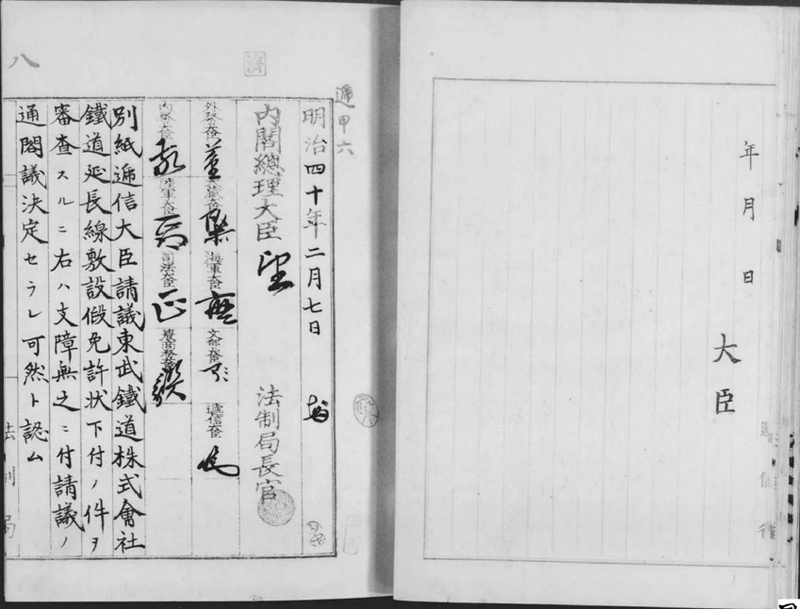 年月日
大臣
逓甲六
明治四十年二月七日
内閣總理大臣
法制局長官
外務大臣
大藏大臣
海軍大臣
文部大臣
遞信大臣
内務大臣
陸軍大臣
司法大臣
農商務大臣
別紙遞信大臣請議東武鐵道株式會社
鐵道延長線敷設假免許状下付ノ件ヲ
審査スルニ右ハ支障無之ニ付請議ノ
通閣議決定セラレ可然ト認ム
八
法制局